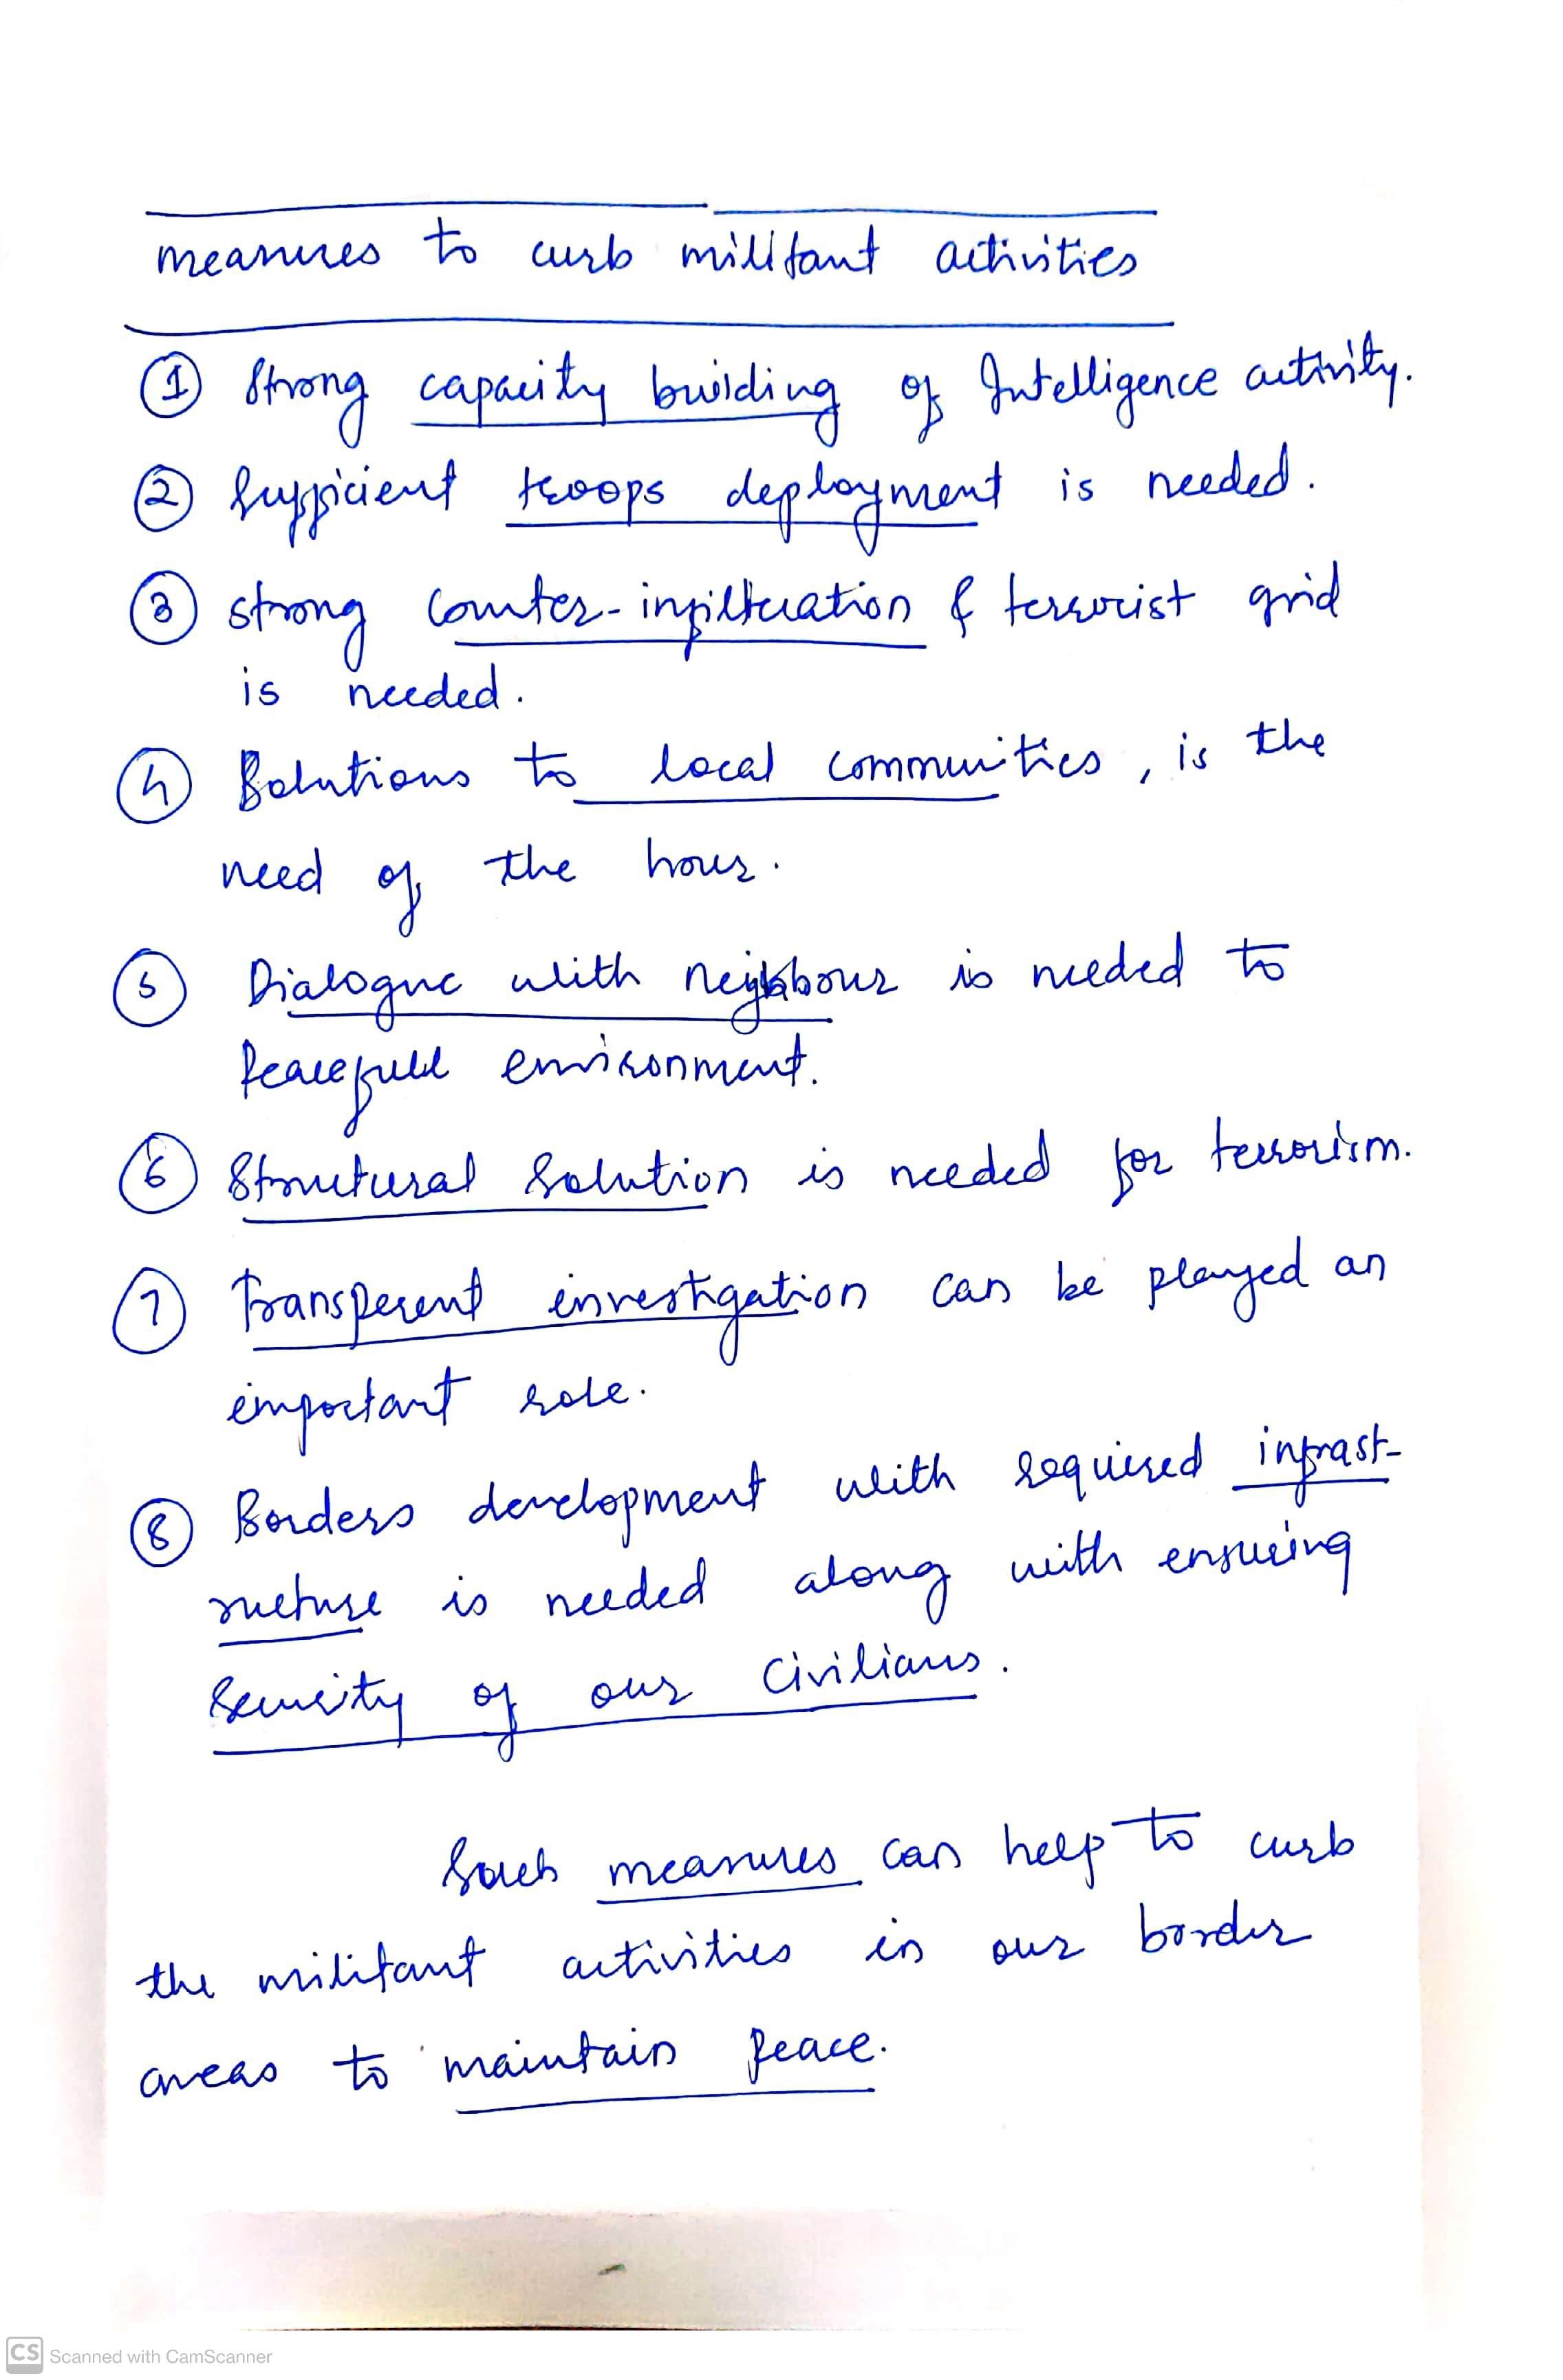 measures to curb militant activities
① Strong capacity building of Intelligence activity.
② Sufficient troops deployment is needed.
③ strong counter-infiltration & terrorist grid
is needed.
④ Solutions to local communities, is the
need of the hour.
⑤ Dialogue with neighbour is needed to
Peacefull environment.
⑥ Structural Solution is needed for terrorism.
⑦ Transperent investigation can be played an
important role.
⑧ Borders development with required infrast-
ructure is needed along with ensuring
Security of our Civilians.
Such measures can help to curb
the militant activities in our border
areas to maintain Peace.
CS Scanned with CamScanner